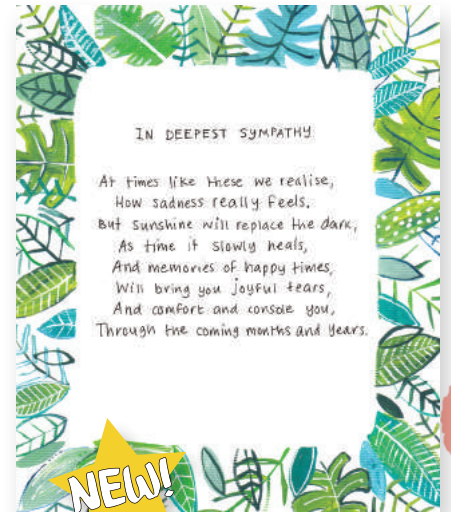 IN DEEPEST SYMPATHY
At times like these we realise,
How sadness really feels.
But sunshine will replace the dark,
As time it slowly heals,
And memories of happy times,
Will bring you joyful tears,
And comfort and console you,
Through the coming months and years.
NEW!